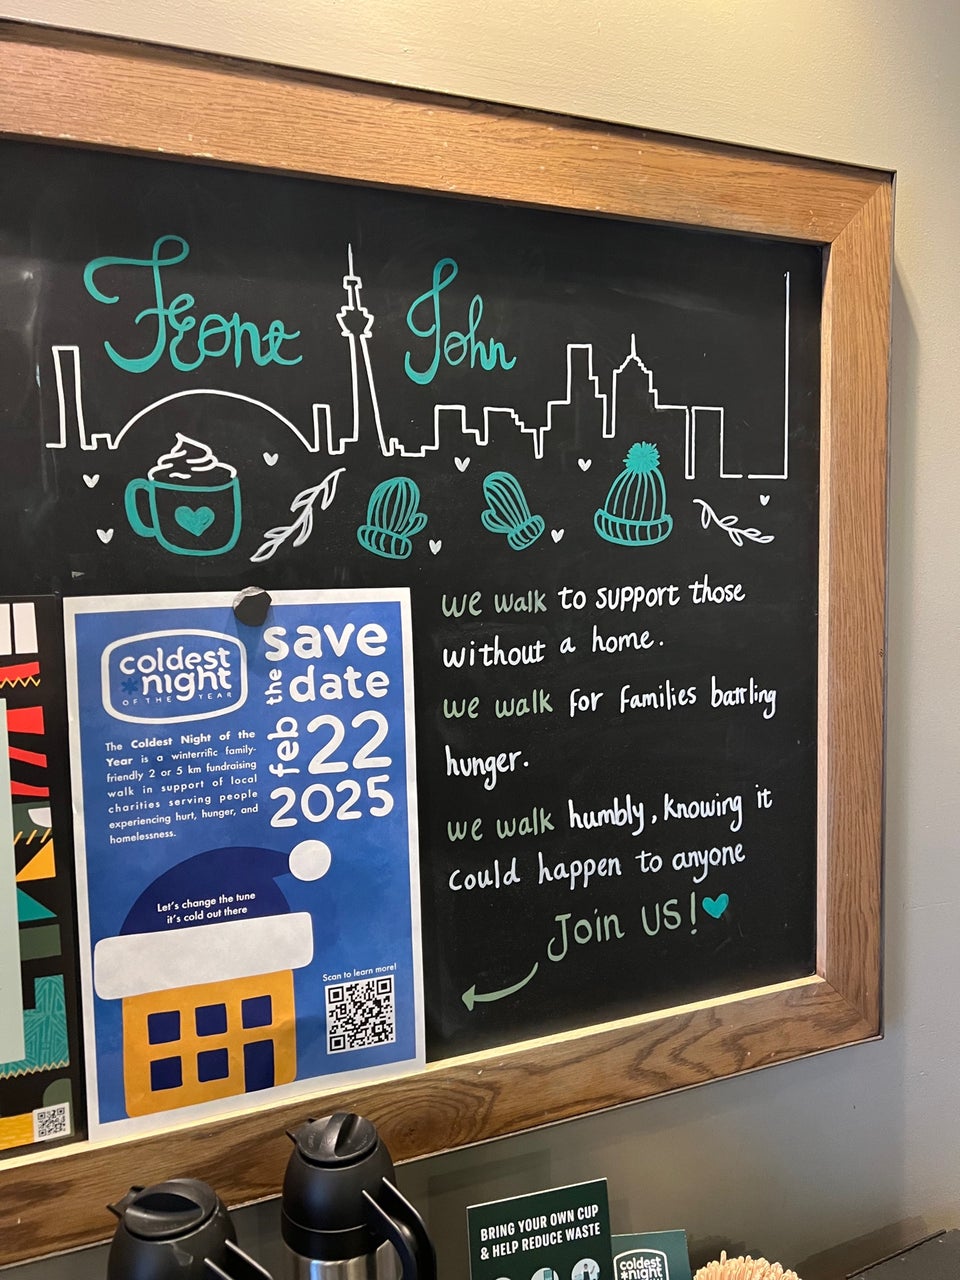 Front John
we walk to support those
without a home.
we walk for families battling
hunger.
we walk humbly, knowing it
could happen to anyone
Join US!
coldest
night
OF THE YEAR
save
the date
feb 22
2025
The Coldest Night of the
Year is a winterrific family-
friendly 2 or 5 km fundraising
walk in support of local
charities serving people
experiencing hurt, hunger, and
homelessness.
Let's change the tune
it's cold out there
Scan to learn more!
BRING YOUR OWN CUP
& HELP REDUCE WASTE
coldest
night